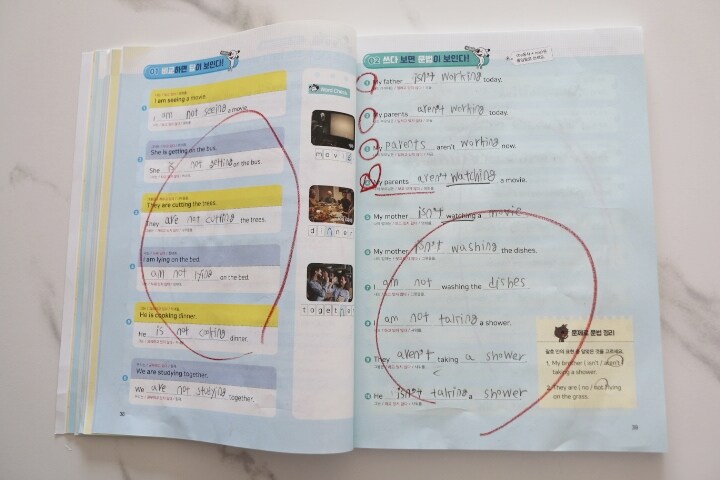 01 비교하면 답이 보인다!
I am seeing a movie.
I am not seeing a movie.
She is getting on the bus.
She is not getting on the bus.
They are cutting the trees.
They are not cutting the trees.
I am lying on the bed.
I am not lying on the bed.
He is cooking dinner.
He is not cooking dinner.
We are studying together.
We are not studying together.
38
movie
dinner
together
02 쓰다 보면 문법이 보인다!
1 My father isn't working today.
2 My parents aren't working today.
3 My parents aren't working now.
4 My parents aren't watching a movie.
5 My mother isn't watching a movie
6 My mother isn't washing the dishes.
7 I am not washing the dishes
8 I am not taking a shower.
9 They aren't taking a shower
10 He isn't taking a shower
문제로 문법 정리
1. My brother ( isn't / aren't )
taking a shower.
2. They are ( no / not ) lying
on the grass.
39